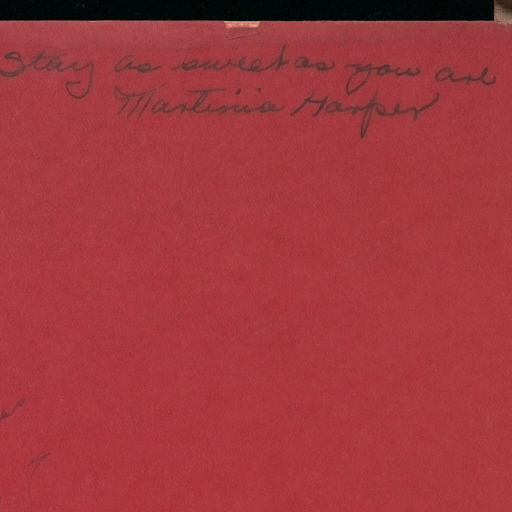 Stay as sweet as you are
Martinia Harper